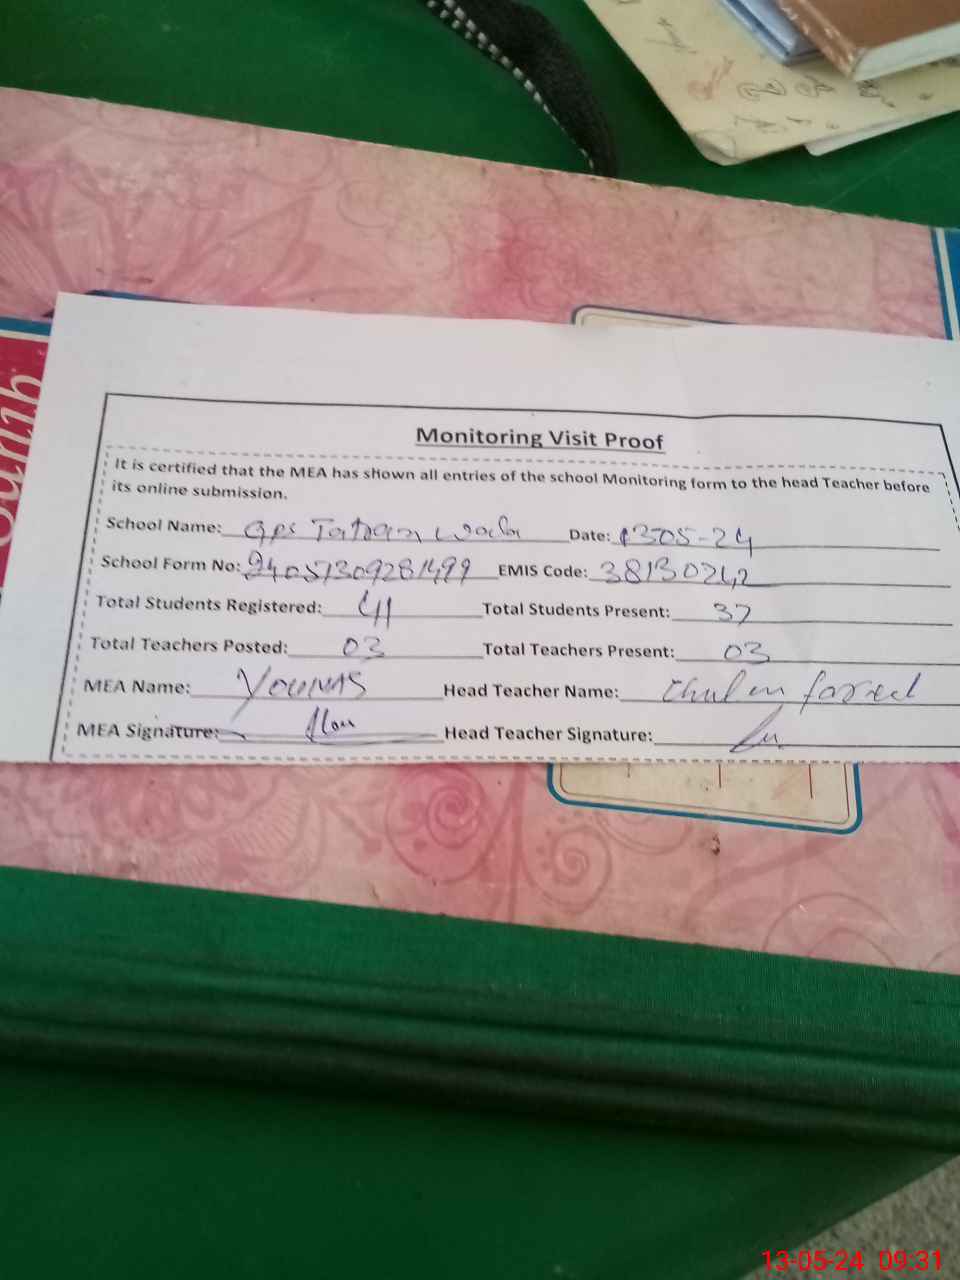 Monitoring Visit Proof
It is certified that the MEA has shown all entries of the school Monitoring form to the head Teacher before
its online submission.
School Name: Gps Tatran wala Date: 1305-24
School Form No: 24051309281499 EMIS Code: 38130242
Total Students Registered: 41 Total Students Present: 37
Total Teachers Posted: 03 Total Teachers Present: 03
MEA Name: YOUNAS Head Teacher Name: Ghulam fareed
MEA Signature: Head Teacher Signature:
13-05-24 09:31